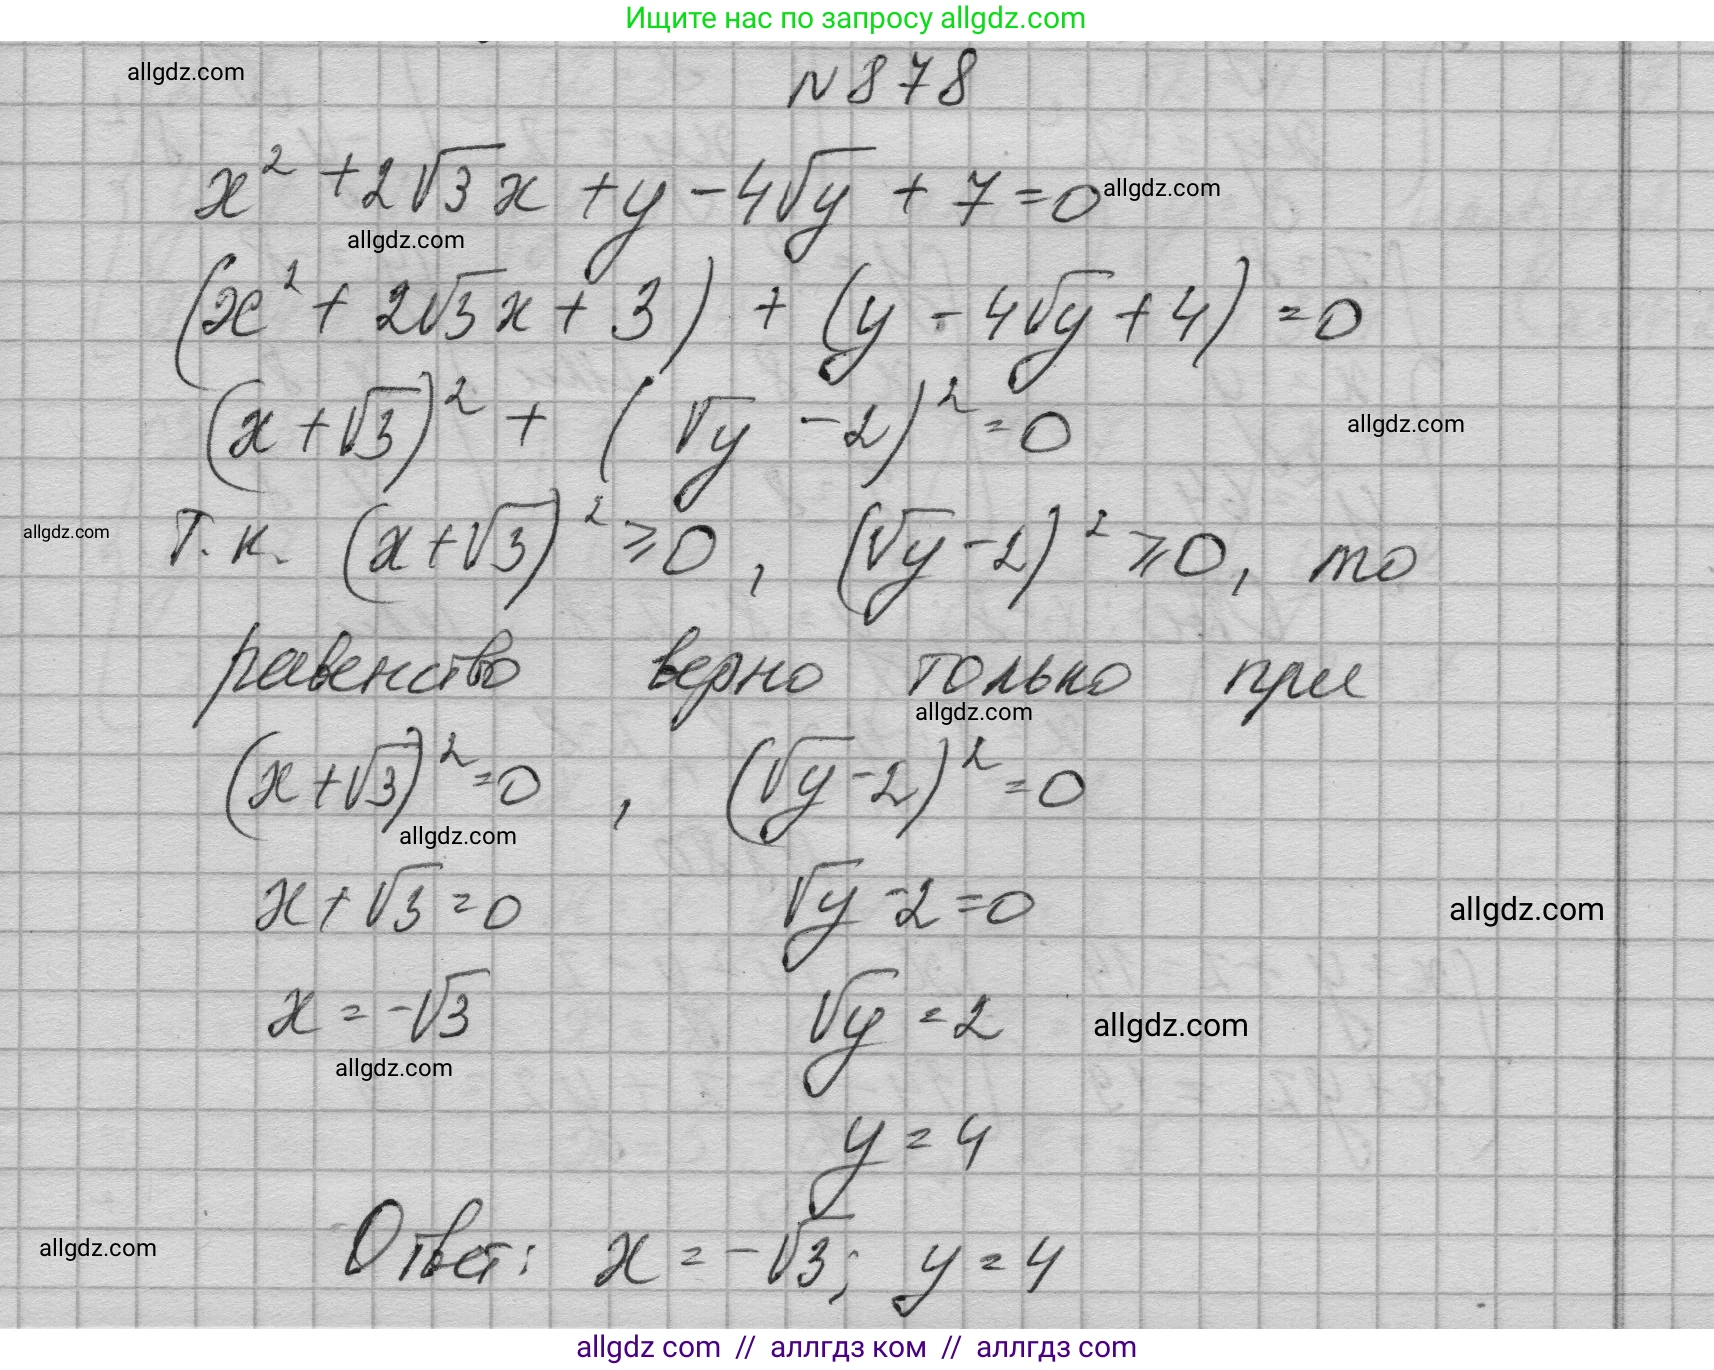 Ищите нас по запросу allgdz.com
allgdz.com
N 878
x² + 2√3x + y - 4√y + 7 = 0
allgdz.com
allgdz.com
(x² + 2√3x + 3) + (y - 4√y + 4) = 0
(x + √3)² + (√y - 2)² = 0
allgdz.com
allgdz.com
Т.к. (x + √3)² ⩾ 0, (√y - 2)² ⩾ 0, то
равенство верно только при
allgdz.com
(x + √3)² = 0, (√y - 2)² = 0
allgdz.com
x + √3 = 0 √y - 2 = 0
allgdz.com
x = -√3 √y = 2
allgdz.com
allgdz.com
y = 4
allgdz.com
Ответ: x = -√3; y = 4
allgdz com // аллгдз ком // аллгдз com